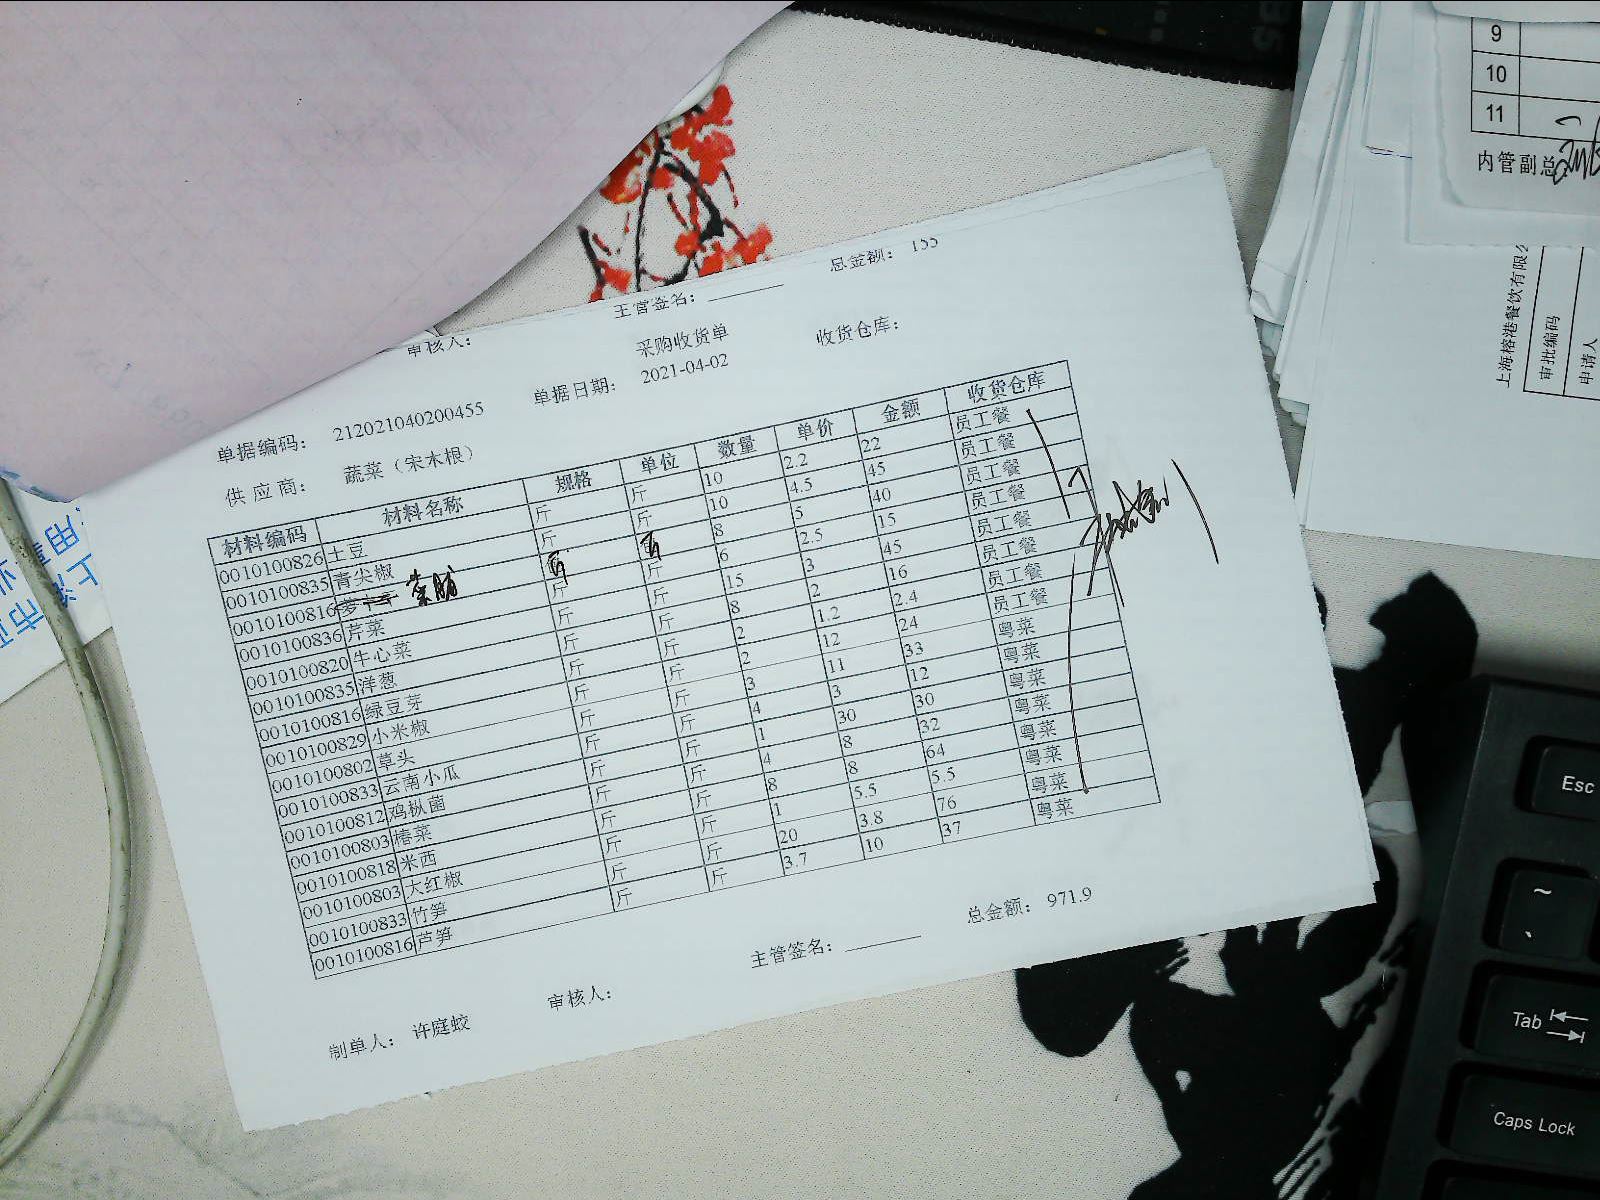 总金额： 155
主管签名：
审核人：
采购收货单
收货仓库：
单据编码： 212021040200455 单据日期： 2021-04-02
供 应 商： 蔬菜（宋木根）
材料编码 材料名称 规格 单位 数量 单价 金额 收货仓库
0010100826 土豆 斤 斤 10 2.2 22 员工餐
0010100835 青尖椒 斤 斤 10 4.5 45 员工餐
0010100816 菜脯 8 5 40 员工餐
0010100836 芹菜 斤 斤 6 2.5 15 员工餐
0010100820 牛心菜 斤 斤 15 3 45 员工餐
0010100835 洋葱 斤 斤 8 2 16 员工餐
0010100816 绿豆芽 斤 斤 2 1.2 2.4 员工餐
0010100829 小米椒 斤 斤 2 12 24 员工餐
0010100802 草头 斤 斤 3 11 33 粤菜
0010100833 云南小瓜 斤 斤 4 3 12 粤菜
0010100812 鸡枞菌 斤 斤 1 30 30 粤菜
0010100803 椿菜 斤 斤 4 8 32 粤菜
0010100818 米西 斤 斤 8 8 64 粤菜
0010100803 大红椒 斤 斤 1 5.5 5.5 粤菜
0010100833 竹笋 斤 斤 20 3.8 76 粤菜
0010100816 芦笋 斤 斤 3.7 10 37 粤菜
总金额： 971.9
主管签名：
审核人：
制单人： 许庭蛟
9
10
11
内管副总
上海榕港餐饮有限公
审批编码
申请人
Esc
~
Tab
Caps Lock